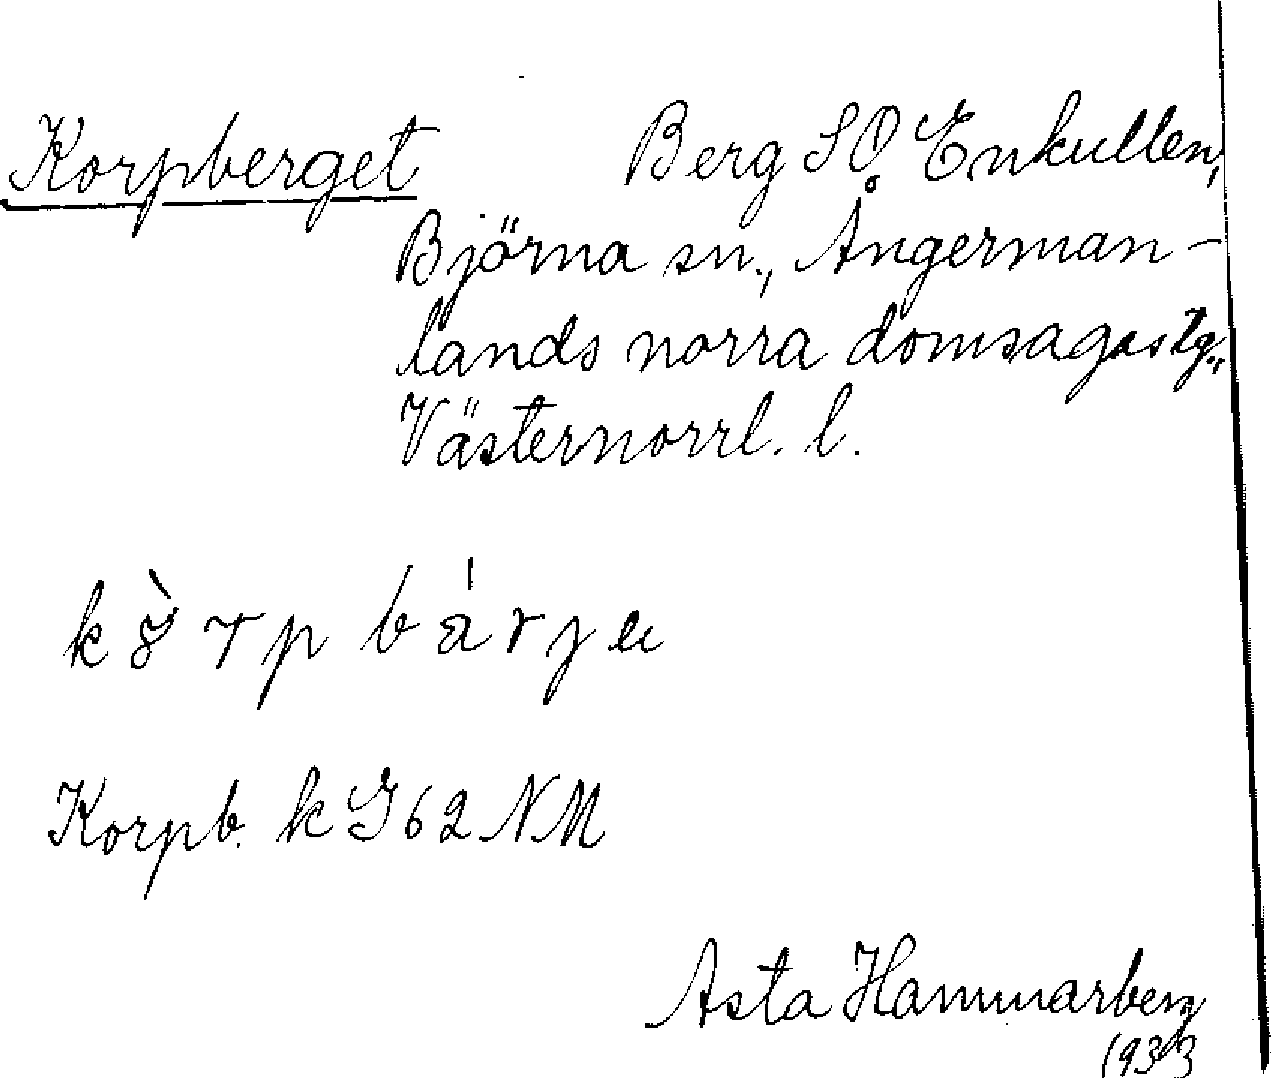 Korpberget Berg SO Enkullen,
Björna sn., Ångerman-
lands norra domsagastg.,
Västernorrl. l.
Korpb. k G62 NM
Asta Hammarberg
1933